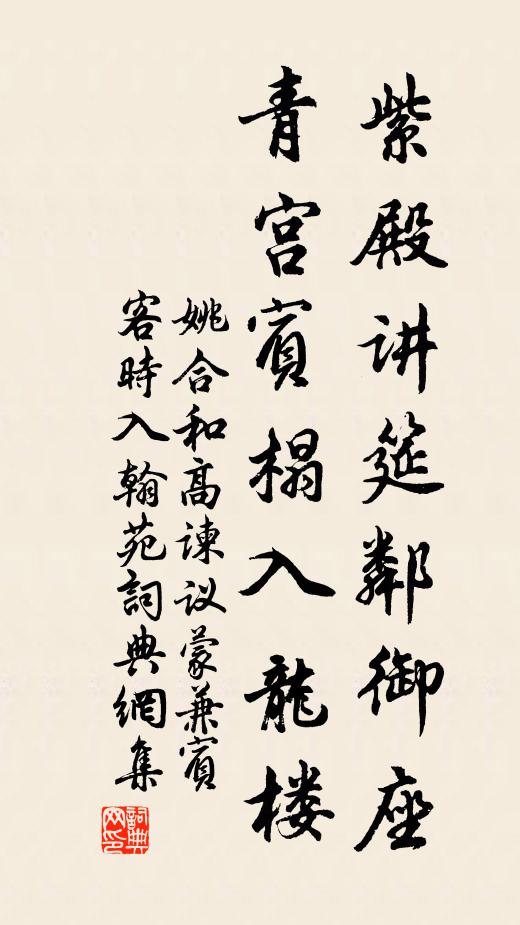 紫殿讲筵鄰御座
青宫賓榻入龍楼
姚合和高諫议蒙兼賓
客時入翰苑詞典網集
詞典
网印